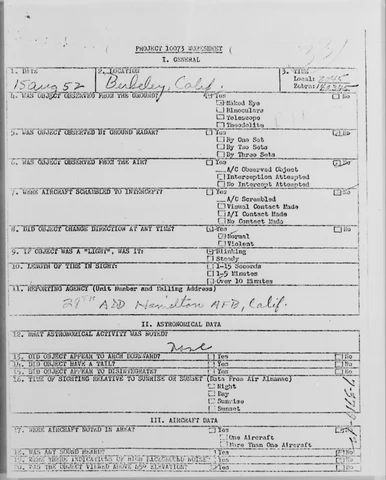 PROJECT 10073 WORKSHEET
I. GENERAL
1. DATE 2. LOCATION 3. TIME
15 Aug 52 Berkeley, Calif. Local:
Zebra:
4. WAS OBJECT OBSERVED FROM THE GROUND? Yes No
Naked Eye
Binoculars
Telescope
Theodolite
5. WAS OBJECT OBSERVED BY GROUND RADAR? Yes No
By One Set
By Two Sets
By Three Sets
6. WAS OBJECT OBSERVED FROM THE AIR? Yes No
A/C Observed Object
Interception Attempted
No Intercept Attempted
7. WERE AIRCRAFT SCRAMBLED TO INTERCEPT? Yes No
A/C Scrambled
Visual Contact Made
A/I Contact Made
No Contact Made
8. DID OBJECT CHANGE DIRECTION AT ANY TIME? Yes No
Normal
Violent
9. IF OBJECT WAS A "LIGHT", WAS IT: Blinking
Steady
10. LENGTH OF TIME IN SIGHT: 1-15 Seconds
1-5 Minutes
Over 10 Minutes
11. REPORTING AGENCY (Unit Number and Mailing Address)
29TH ADD Hamilton AFB, Calif.
II. ASTRONOMICAL DATA
12. WHAT ASTRONOMICAL ACTIVITY WAS NOTED?
None
13. DID OBJECT APPEAR TO ARCH DOWNWARD? Yes No
14. DID OBJECT HAVE A TAIL? Yes No
15. DID OBJECT APPEAR TO DISINTEGRATE? Yes No
16. TIME OF SIGHTING RELATIVE TO SUNRISE OR SUNSET (Data From Air Almanac)
Night
Day
Sunrise
Sunset
III. AIRCRAFT DATA
17. WERE AIRCRAFT NOTED IN AREA? Yes No
One Aircraft
More Than One Aircraft
18. WAS ANY SOUND HEARD? Yes No
19. WERE THERE INDICATIONS OF HIGH BACKGROUND NOISE? Yes No
20. WAS THE OBJECT VIEWED ABOVE 45° ELEVATION? Yes No